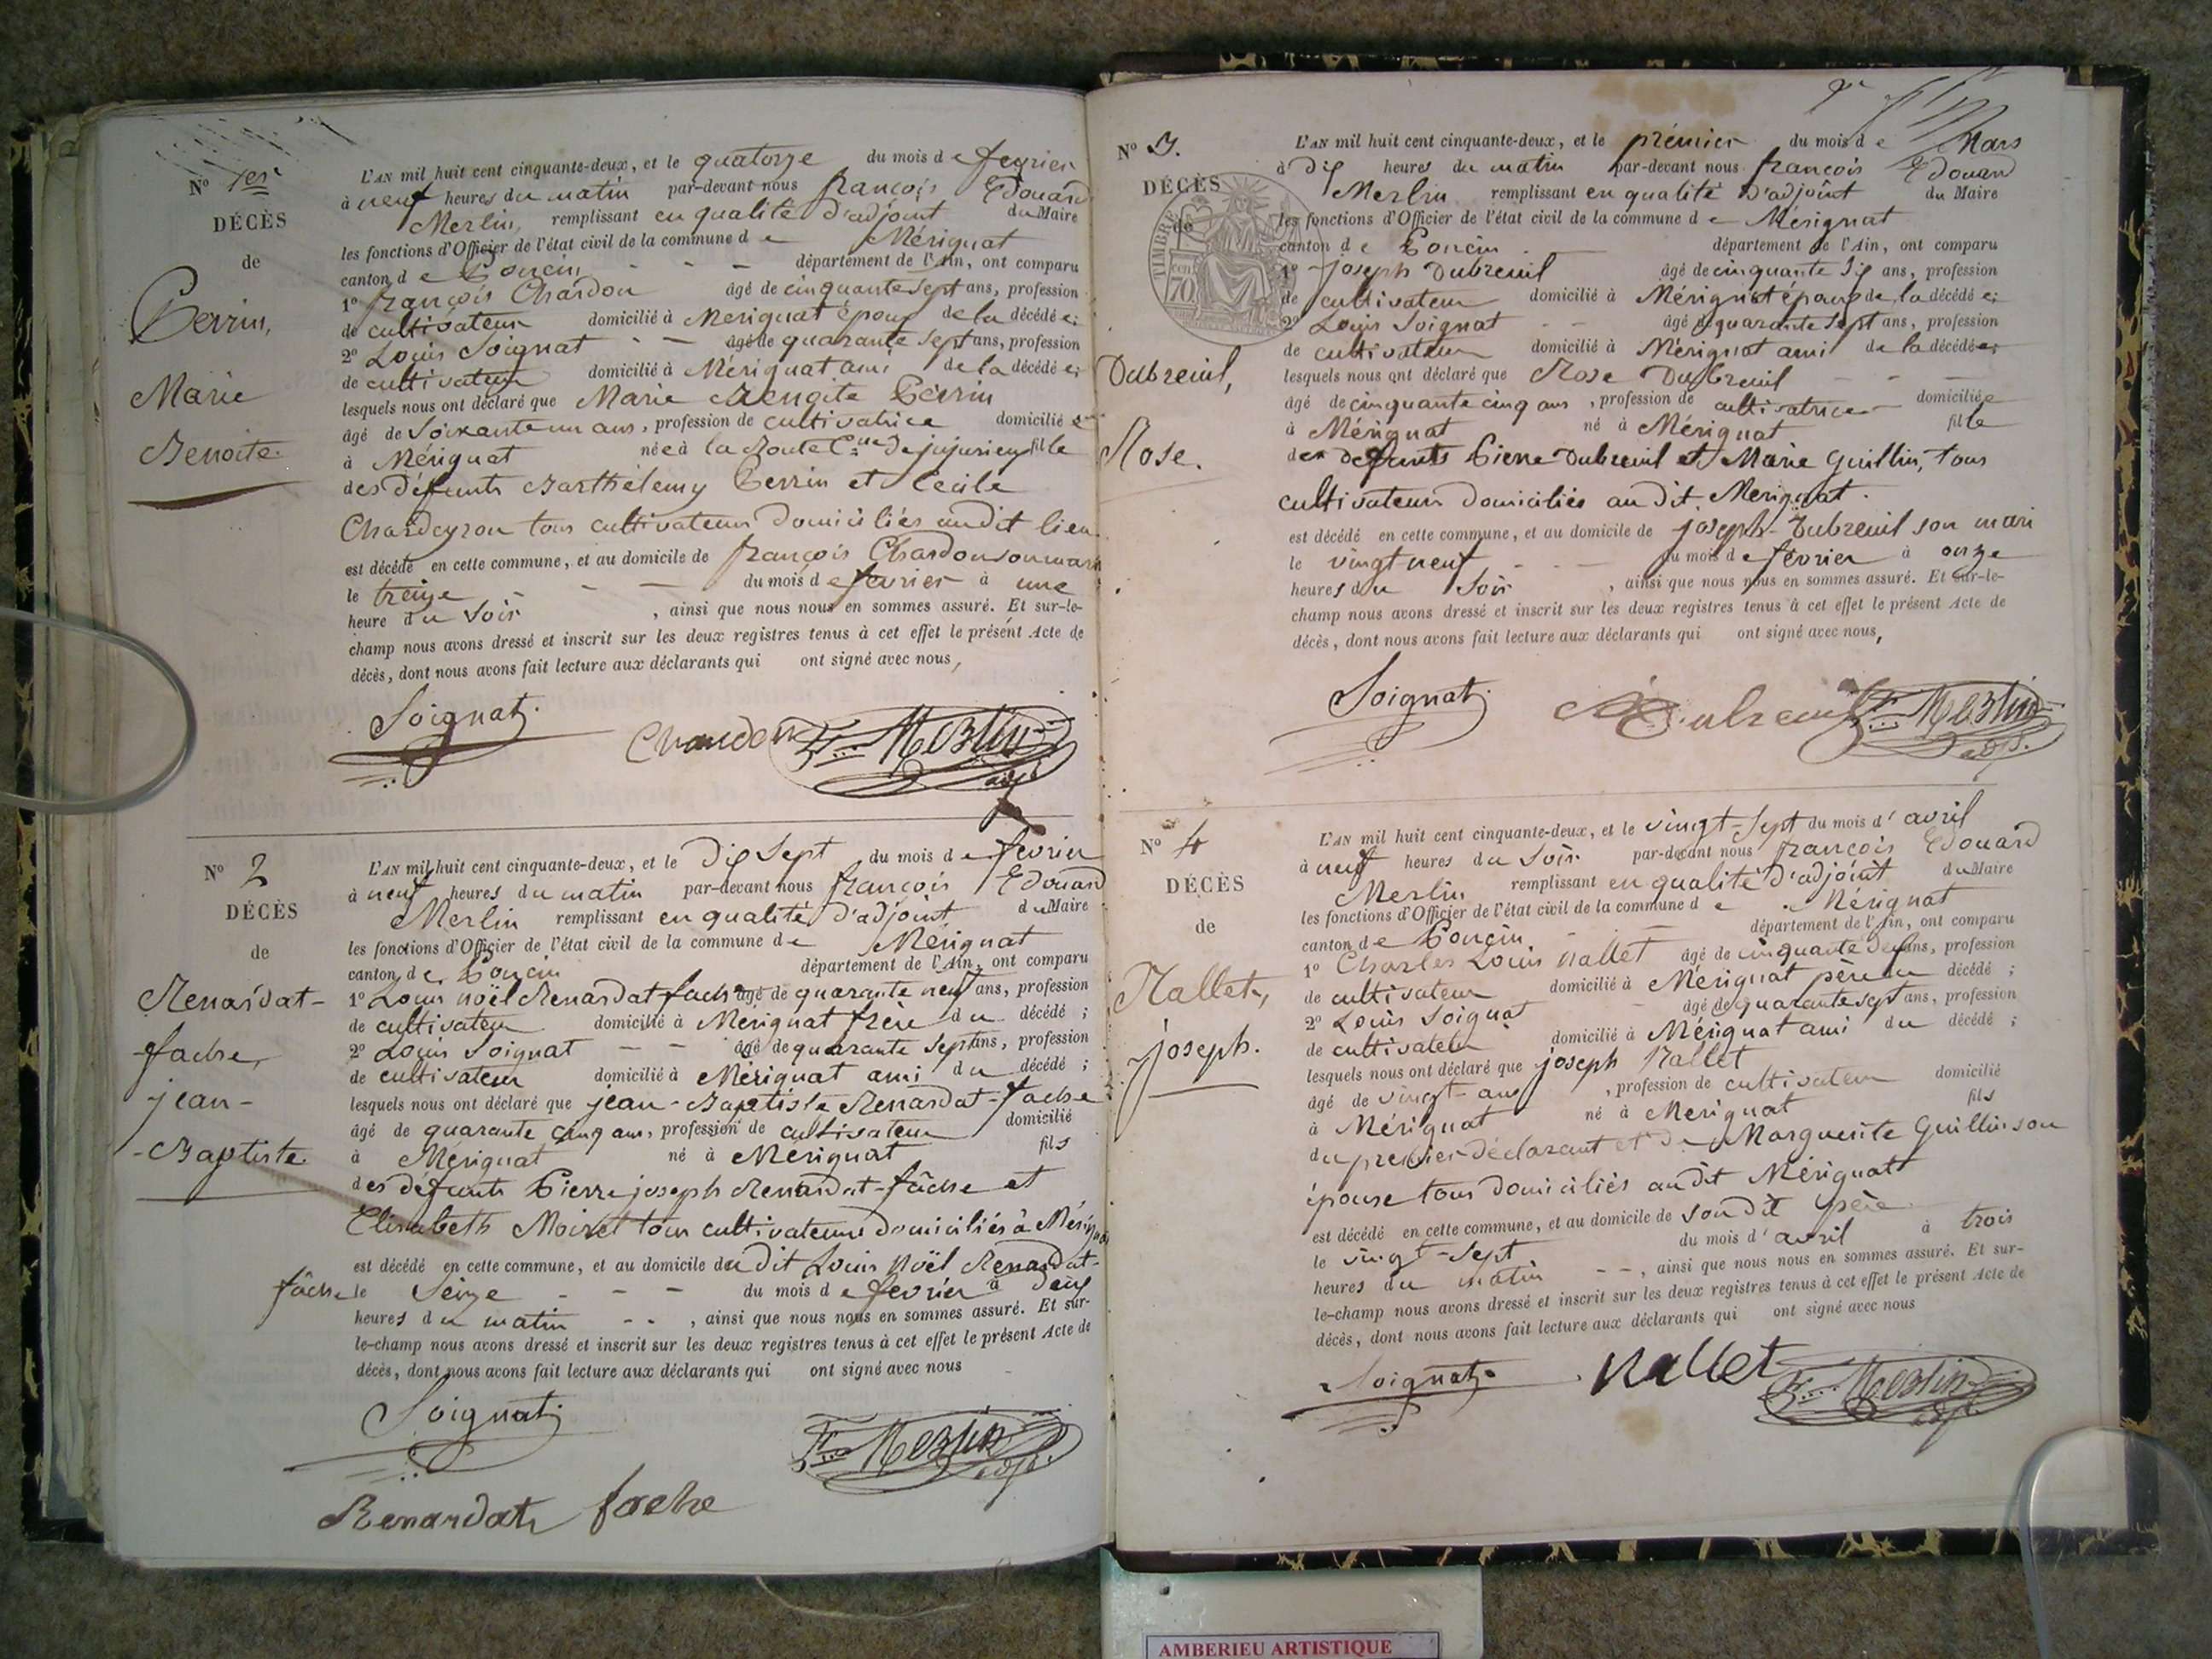 N° 1er
DÉCÈS
de
Perrin,
Marie
Benoite.
L'AN mil huit cent cinquante-deux, et le quatorze du mois de fevrier
à neuf heures du matin par-devant nous françois Edouard
Merlin, remplissant en qualité d'adjoint du Maire
les fonctions d'Officier de l'état civil de la commune de Mérignat
canton de Poncin département de l'Ain, ont comparu
1° françois Chardon âgé de cinquante sept ans, profession
de cultivateur domicilié à Merignat époux de la décédée;
2° Louis Soignat âgé de quarante sept ans, profession
de cultivateur domicilié à Mérignat ami de la décédée;
lesquels nous ont déclaré que Marie Benoite Perrin
âgé de Soixante un ans, profession de cultivatrice domicilié
à Mérignat née à la Route Cne de jujurieux fille
des défunts Barthélemy Perrin et Cécile
Chardeyron tous cultivateurs domiciliés au dit lieu
est décédé en cette commune, et au domicile de françois Chardon son mari
le treize du mois de fevrier à une
heure du soir, ainsi que nous nous en sommes assuré. Et sur-le-
champ nous avons dressé et inscrit sur les deux registres tenus à cet effet le présent Acte de
décès, dont nous avons fait lecture aux déclarants qui ont signé avec nous,
Soignat
Chardon
Merlin
adj.
N° 2
DÉCÈS
de
Renardat-
fache,
jean-
-Baptiste
L'AN mil huit cent cinquante-deux, et le dix Sept du mois de fevrier
à neuf heures du matin par-devant nous françois Edouard
Merlin remplissant en qualité d'adjoint du Maire
les fonctions d'Officier de l'état civil de la commune de Mérignat
canton de Poncin département de l'Ain, ont comparu
1° Louis noël Renardat-fache âgé de quarante neuf ans, profession
de cultivateur domicilié à Merignat frère du décédé;
2° Louis Soignat âgé de quarante sept ans, profession
de cultivateur domicilié à Mérignat ami du décédé;
lesquels nous ont déclaré que jean-Baptiste Renardat-fache
âgé de quarante cinq ans, profession de cultivateur domicilié
à Mérignat né à Merignat fils
des défunts Pierre joseph Renardat-fâche et
Elisabeth tous cultivateurs domiciliés à Mérignat
est décédé en cette commune, et au domicile du dit Louis noël Renardat-
fâche le Seize du mois de fevrier à deux
heures du matin, ainsi que nous nous en sommes assuré. Et sur-
le-champ nous avons dressé et inscrit sur les deux registres tenus à cet effet le présent Acte de
décès, dont nous avons fait lecture aux déclarants qui ont signé avec nous
Soignat
Merlin
adj.
Renardat fache
N° 3.
DÉCÈS
de
TIMBRE
70
Dubreuil,
Rose.
L'AN mil huit cent cinquante-deux, et le prémier du mois de Mars
à dix heures du matin par-devant nous françois Edouard
Merlin remplissant en qualité d'adjoint du Maire
les fonctions d'Officier de l'état civil de la commune de Merignat
canton de Poncin département de l'Ain, ont comparu
1° joseph Dubreuil âgé de cinquante dix ans, profession
de cultivateur domicilié à Mérignat époux de la décédée;
2° Louis Soignat âgé de quarante sept ans, profession
de cultivateur domicilié à Mérignat ami de la décédée;
lesquels nous ont déclaré que Rose Dubreuil
âgé de cinquante cinq ans, profession de cultivatrice domiciliée
à Mérignat né à Mérignat fille
des defunts Pierre Dubreuil et Marie Guillin, tous
cultivateurs domiciliés au dit Merignat.
est décédé en cette commune, et au domicile de joseph Dubreuil son mari
le vingt neuf du mois de fevrier à onze
heures du Soir, ainsi que nous nous en sommes assuré. Et sur-le-
champ nous avons dressé et inscrit sur les deux registres tenus à cet effet le présent Acte de
décès, dont nous avons fait lecture aux déclarants qui ont signé avec nous,
Soignat
Dubreuil
Merlin
adj.
N° 4
DÉCÈS
de
Nallet,
joseph.
L'AN mil huit cent cinquante-deux, et le vingt-Sept du mois d'avril
à neuf heures du Soir par-devant nous françois Edouard
Merlin remplissant en qualité d'adjoint du Maire
les fonctions d'Officier de l'état civil de la commune de Mérignat
canton de Poncin département de l'Ain, ont comparu
1° Charles Louis Nallet âgé de cinquante ans, profession
de cultivateur domicilié à Mérignat père du décédé;
2° Louis Soignat âgé de quarante sept ans, profession
de cultivateur domicilié à Mérignat ami du décédé;
lesquels nous ont déclaré que joseph Nallet
âgé de vingt-ans, profession de cultivateur domicilié
à Mérignat né à Merignat fils
du premier déclarant et de Marguerite Guillin son
épouse tous domiciliés au dit Mérignat
est décédé en cette commune, et au domicile de son dit père
le vingt-sept du mois d'avril à trois
heures du matin, ainsi que nous nous en sommes assuré. Et sur-
le-champ nous avons dressé et inscrit sur les deux registres tenus à cet effet le présent Acte de
décès, dont nous avons fait lecture aux déclarants qui ont signé avec nous
Soignat
Nallet
Merlin
adj.
AMBERIEU ARTISTIQUE